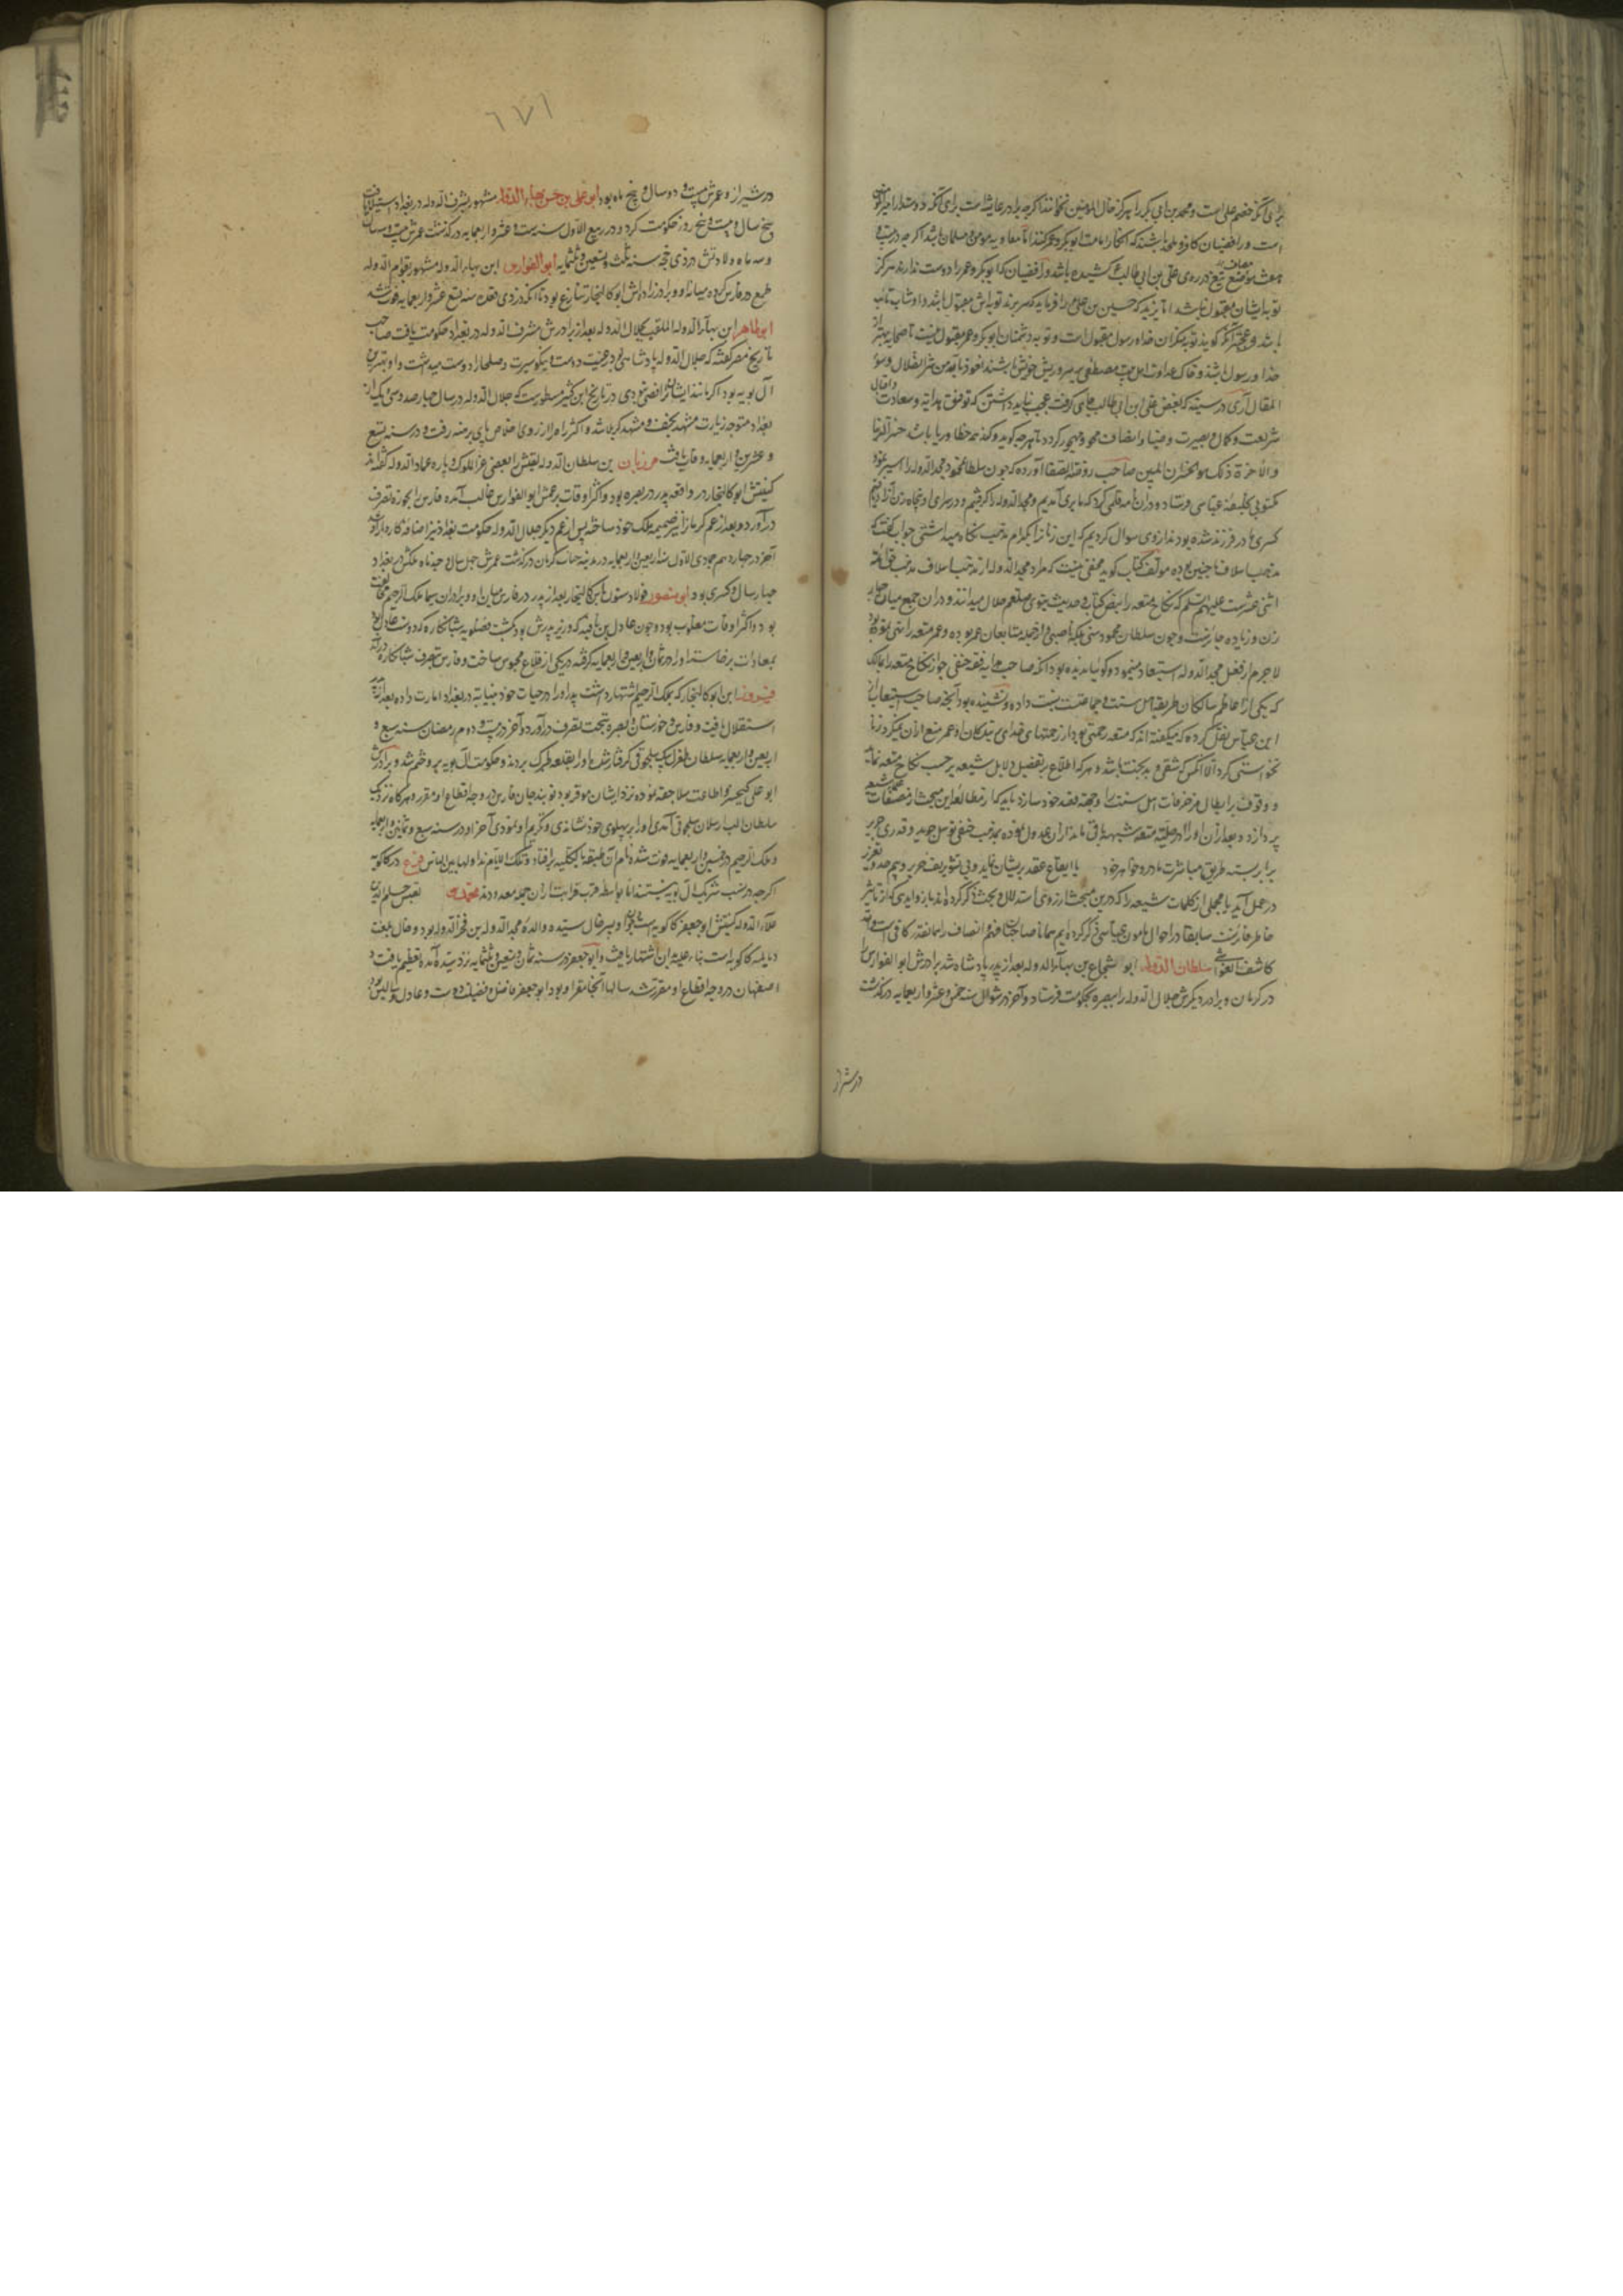 برای آنکه خصم علی است و محمد بن ابی بکر را هرگز خال المؤمنین نخوانند اگرچه برادر عایشه است برای آنکه دوستدار امیرالمؤمنین
است و رافضیان کافر و ملحد باشند که انکار امامت ابوبکر و عمر کنند اما معاویه مؤمن و مسلمان باشد اگرچه در بیست و
هفت موضع تیغ در روی علی بن ابی طالب کشیده باشد و رافضیان که ابوبکر و عمر را دوست ندارند هرگز
توبه ایشان مقبول نباشد اما یزید که حسین بن علی را فرماید که سر برند توبه‌اش مقبول باشد و او شاب تائب
باشد و عجبتر آنکه گویند توبه منکران خدا و رسول مقبول است و توبه دشمنان ابوبکر و عمر مقبول نیست تا صحابه بهتر از
خدا و رسول باشند و خاک عداوت اهل بیت مصطفی بر سر و ریش خویش پاشند نعوذ بالله من شر الضلال و سوء
المقال آری در سینه که بغض علی ابن ابی طالب جای گرفت عجب نباید داشتن که توفیق هدایه و سعادت و اقبال
شریعت و کمال و بصیرت و ضیا و انصاف محو و مهجور گردد تا هرچه گوید و کند همه خطا و ریا باشد خسر الدنیا
و الآخرة ذلک هو الخسران المبین صاحب روضة الصفا آورده که چون سلطان محمود مجدالدوله را اسیر نمود
مکتوبی بخلیفه عباسی فرستاد و در آن نامه قلمی کرد که ما بری آمدیم و مجدالدوله را گرفتیم و در سرای او پنجاه زن آزاد یافتیم
که سی مادر فرزند شده بودند از وی سوال کردیم که این زنان را بکدام مذهب نگاه میداشتی جواب گفت که
مذهب اسلاف ما چنین بوده مولف کتاب گوید مخفی نیست که مراد مجدالدوله از مذهب اسلاف مذهب حقه ائمه
اثنی عشر است علیهم السلام که نکاح متعه را بنص کتاب و حدیث نبوی صلعم حلال میدانند و در آن جمع میان چهار
زن و زیاده جایزست و چون سلطان محمود سنی بلکه ناصبی و از جمله متابعان عمر بوده و عمر متعه را نهی نموده بود
لاجرم از فعل مجدالدوله استبعاد مینمود و گویا ندیده بود آنکه صاحب هدایه فقه حنفی جواز نکاح متعه را بمالک
که یکی از اعاظم سالکان طریقه اهل سنت و جماعتست نسبت داده و نشنیده بود آنچه صاحب استیعاب از
ابن عباس نقل کرده که میگفته‌اند که متعه رحمتی بود از رحمتهای خدای بر بندگان او و عمر منع از آن میکرد زنا
نخواستی کرد الا آنکس که شقی و بدبخت باشد و هر که اطلاع بر تفصیل دلایل شیعه بر حسب نکاح متعه نماید
و وقوف بر ابطال مزخرفات اهل سنت را وجهه قصد خود سازد باید که از مطالعه این مبحث از مصنفات شیعه
پردازد و بعد از آن او را در حلیت متعه شبهه باقی ماند از آن عدول نموده بمذهب حنفی توسل جوید و قدری حریر
برابر بسته طریق مباشرت مادر و خواهر خود با ایقاع عقد بر ایشان نماید و بی تشویش حد و تعزیر
در عمل آید با مجملی از کلمات شیعه را که درین مبحث از روی استدلال و بحث ذکر کرده‌اند با زوایدی که از تاثیر
خاطر فاترست سابقا در احوال مامون عباسی ذکر کرده‌ایم همانا صاحب فهم انصاف را همانقدر کافی است و الله
کاشف الغواشی سلطان الدوله ابو شجاع بن بهاءالدوله بعد از پدر پادشاه شد برادرش ابوالفوارس را
در کرمان و برادر دیگرش جلال الدوله را ببصره بحکومت فرستاد و آخر در شوال سنه خمس و عشر و اربعمایه درگذشت
در شیراز
٦٧١
در شیراز و عمرش بیست و دو سال و پنج ماه بود ابو علی بن حسن بهاءالدوله مشهور بشرف الدوله در بغداد استیلا یافت
پنج سال و بیست و پنج روز حکومت کرد و در ربیع الاول سنه ست و عشر و اربعمایه درگذشت عمرش بیست و سه سال
و سه ماه ولادتش در ذی حجه سنه ثلث و تسعین و ثلثمایه ابوالفوارس ابن بهاءالدوله مشهور بقوام الدوله
طمع در فارس کرده میان او و برادرزاده‌اش ابوکالنجار تنازع بود تا آنکه در ذی قعده سنه تسع عشر و اربعمایه فوت شد
ابوطاهر ابن بهاءالدوله الملقب بجلال الدوله بعد از برادرش مشرف الدوله در بغداد حکومت یافت صاحب
تاریخ مصر گفته که جلال الدوله پادشاهی بود رعیت دوست نیکو سیرت و صلحا را دوست میداشت و او بهترین
آل بویه بود اگر مانند ایشان رافضی نبودی در تاریخ ابن کثیر مسطورست که جلال الدوله در سال چهارصد و سی و یک از
بغداد متوجه زیارت مشهد نجف و مشهد کربلا شد و اکثر راه را از روی اخلاص پای برهنه رفت و در سنه تسع
و عشرین و اربعمایه وفات یافت مرزبان بن سلطان الدوله لقبش را بعضی عزالملوک و پاره عمادالدوله گفته‌اند
کنیتش ابوکالنجار در واقعه پدر در بصره بود و اکثر اوقات بر عمش ابوالفوارس غالب آمده فارس را بحوزه تصرف
درآورد و بعد از عم کرمان را نیز ضمیمه ملک خود ساخته پس از عم دیگر جلال الدوله حکومت بغداد نیز اضافه کاره او شد
آخر در چهاردهم جمادی الاول سنه اربعین و اربعمایه در مدینه جناب کرمان درگذشت عمرش چهل سال و چند ماه ملکش در بغداد
چهار سال و کسری بود ابو منصور فولاد ستون بن ابوکالنجار بعد از پدر در فارس میان او و برادران سیما ملک الرحیم مخالفت
بود و اکثر اوقات مغلوب بود و چون عادل بن مافنه که وزیر پدرش بود بکشت فضلویه شبانکاره که دوست عادل بود
بمعادات برخاسته او را در ثمان و اربعین و اربعمایه گرفته در یکی از قلاع محبوس ساخت و فارس بتصرف شبانکاره درآمد
فیروز ابن ابوکالنجار که بملک الرحیم اشتهار داشت پدر او را در حیات خود بنیابه در بغداد امارت داده بعد از پدر
استقلال یافت و فارس و خوزستان و بصره بتحت تصرف درآورد و آخر در بیست و دوم رمضان سنه سبع و
اربعین و اربعمایه سلطان طغرل بیک سلجوقی گرفتار شد و او را بقلعه طبرک بردند و حکومت آل بویه برو ختم شد و برادرش
ابو علی کیخسرو اطاعت سلاجقه نموده نزد ایشان موقر بود نوبندجان فارس در وجه اقطاع او مقرر و هرگاه نزدیک
سلطان الب ارسلان سلجوقی آمدی او را بر پهلوی خود نشاندی و تکریم او نمودی آخر او در سنه سبع و ثمانین و اربعمایه
و ملک الرحیم در خمسین و اربعمایه فوت شده نام آن طبقه بالکلیه برافتاد و تلک الایام نداولها بین الناس فصل در کاکویه
اگرچه در نسب شریک آل بویه نیستند اما بواسطه قرب قرابت از آن جمله معدودند محمد بن لقبش حسام الدین
علاء الدوله کنیتش ابو جعفر کاکویه است و او پسر خال سیده والده مجدالدوله بن فخرالدوله بود و خال بلغت
دیالمه کاکویه است بناء علیه باین اشتهار یافت و ابو جعفر در سنه ثمان و تسعین و ثلثمایه نزد سیده آمده تعظیم یافت و
اصفهان در وجه اقطاع او مقرر شد سالها آنجا مقر او بود ابو جعفر فاضل و فضیلت دوست و عادل و سالیس بود